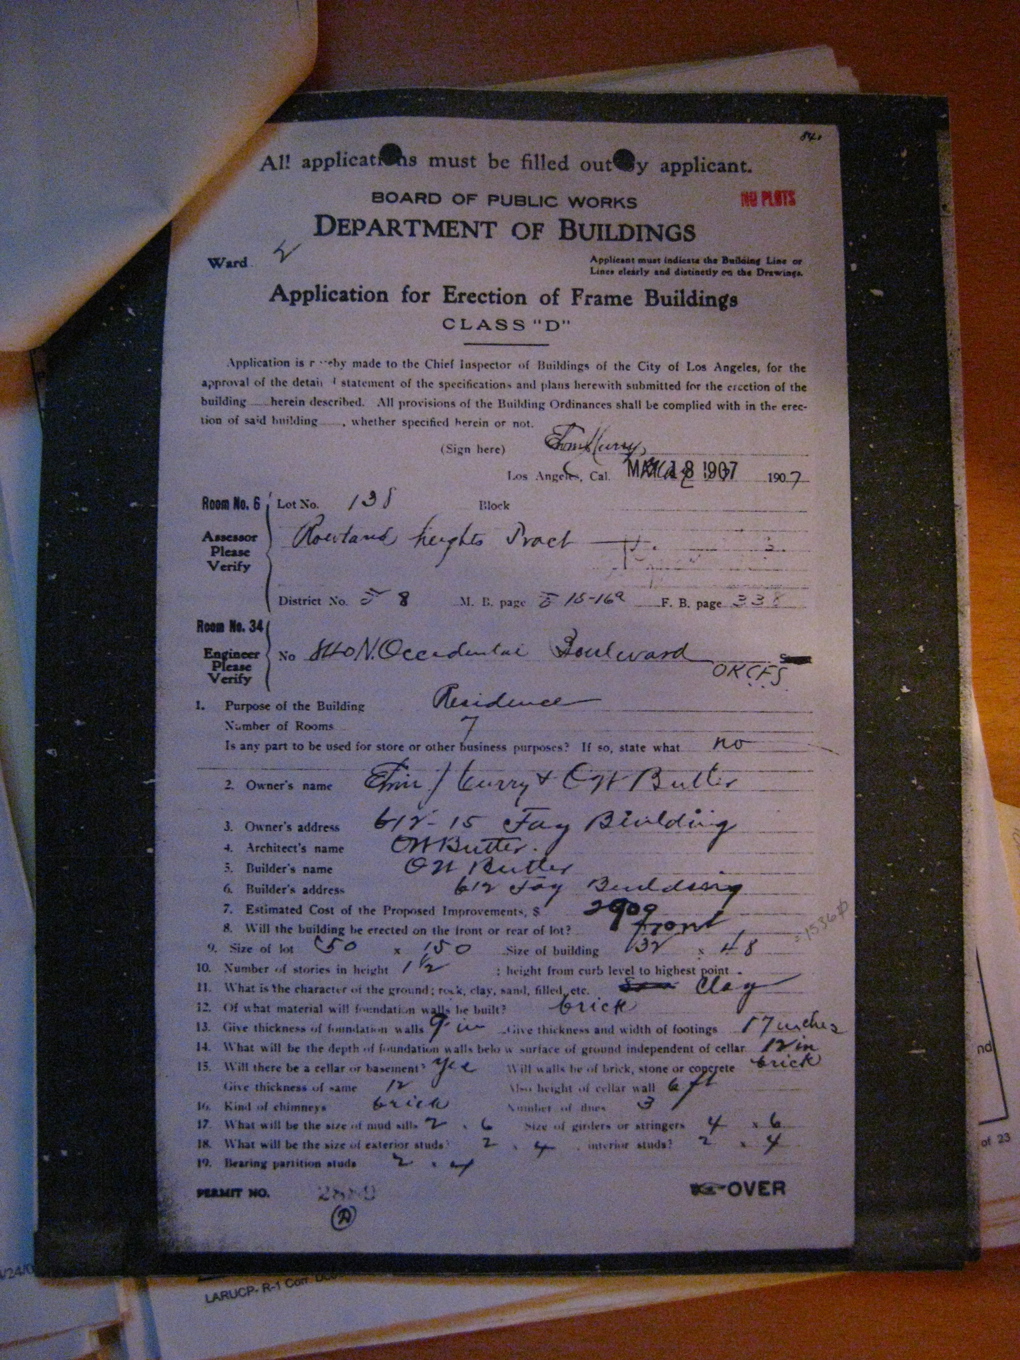 84.
All applications must be filled out by applicant.
BOARD OF PUBLIC WORKS
NO PLOTS
DEPARTMENT OF BUILDINGS
Ward 2
Applicant must indicate the Building Line or
Lines clearly and distinctly on the Drawings.
Application for Erection of Frame Buildings
CLASS "D"
Application is hereby made to the Chief Inspector of Buildings of the City of Los Angeles, for the
approval of the detailed statement of the specifications and plans herewith submitted for the erection of the
building herein described. All provisions of the Building Ordinances shall be complied with in the erec-
tion of said building, whether specified herein or not.
(Sign here)
Los Angeles, Cal. 18 1907 1907
Room No. 6 Lot No. 138 Block
Assessor Please Verify
Heights Tract
District No. 8 M. B. page 15-16 F. B. page 338
Room No. 34
Engineer Please Verify
No N. Occidental Boulevard
OK CFS
1. Purpose of the Building Residence
Number of Rooms 7
Is any part to be used for store or other business purposes? If so, state what no
2. Owner's name & O W Butler
3. Owner's address 612-15 Fay Building
4. Architect's name OW Butler.
5. Builder's name OW Butler
6. Builder's address 612 Fay Building
7. Estimated Cost of the Proposed Improvements, $ 2900
8. Will the building be erected on the front or rear of lot? front
9. Size of lot 50 x 150 Size of building 32 x 48
=1536
10. Number of stories in height 1½ ; height from curb level to highest point
11. What is the character of the ground; rock, clay, sand, filled, etc. Clay
12. Of what material will foundation walls be built? brick
13. Give thickness of foundation walls 9 in Give thickness and width of footings 17 inches
14. What will be the depth of foundation walls below surface of ground independent of cellar 12 in
15. Will there be a cellar or basement? yes Will walls be of brick, stone or concrete brick
Give thickness of same 12 Also height of cellar wall 6 ft
16. Kind of chimneys brick Number of flues 3
17. What will be the size of mud sills 2 x 6 Size of girders or stringers 4 x 6
18. What will be the size of exterior studs? 2 x 4, interior studs? 2 x 4
19. Bearing partition studs 2 x 4
PERMIT NO. OVER
nd
of 23
LARUCP- R-1 Corr.